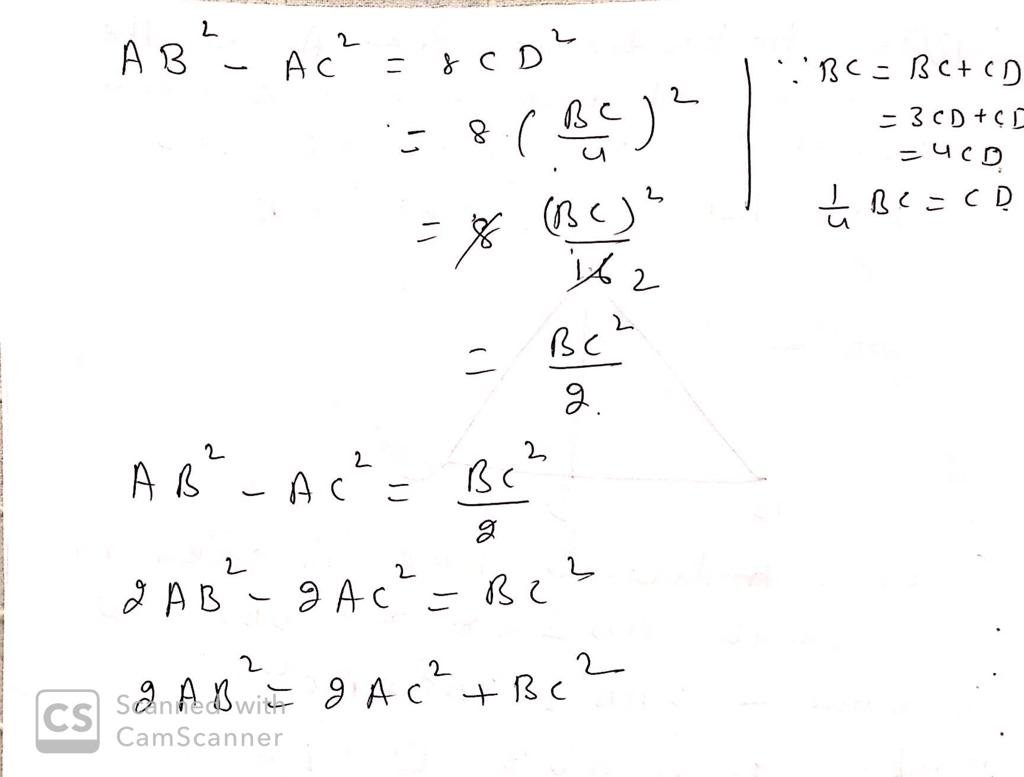 AB² - AC² = 8CD²
= 8 (BC/4)²
= 8 (BC)²/16 2
= BC²/2.
∵ BC = BC + CD
= 3CD + CD
= 4CD
1/4 BC = CD
AB² - AC² = BC²/2
2AB² - 2AC² = BC²
2AB² = 2AC² + BC²
CS Scanned with
CamScanner